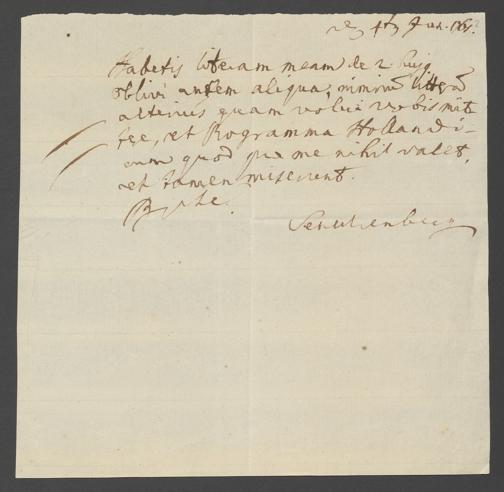 4ta Jan. 1767.
Habetis literam meam de 2 hujq
oblivi autem aliqua, nimirū litterā
alterius quam volui vobis mit
tere, et Programma Hollandi-
cum quod pro me nihil valet,
et tamen miserunt.